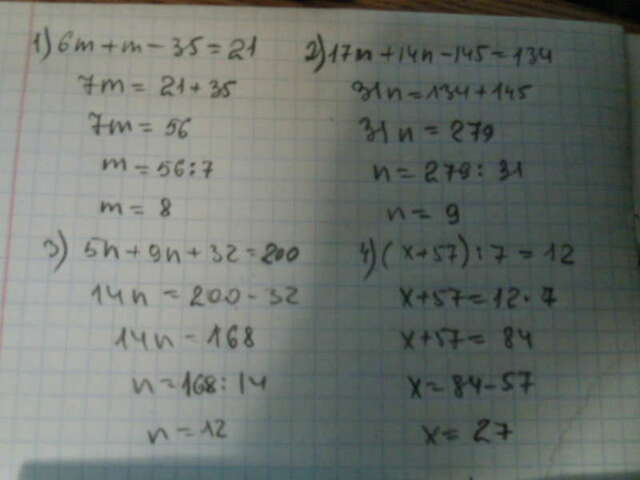 1) 6m + m - 35 = 21
7m = 21 + 35
7m = 56
m = 56 : 7
m = 8
2) 17n + 14n - 145 = 134
31n = 134 + 145
31n = 279
n = 279 : 31
n = 9
3) 5n + 9n + 32 = 200
14n = 200 - 32
14n = 168
n = 168 : 14
n = 12
4) (x + 57) : 7 = 12
x + 57 = 12 · 7
x + 57 = 84
x = 84 - 57
x = 27